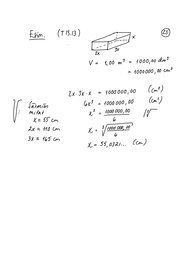 Esim. (T 15.13) 23
x
2x 3x
V = 1,00 m³ = 1000,00 dm³
= 1000000,00 cm³
2x · 3x · x = 1000000,00 (cm³)
6x³ = 1000000,00 (cm³)
x³ = 1000000,00 / 6
x = ³√(1000000,00 / 6)
x = 55,0321... (cm)
V: Särmien
mitat
x = 55 cm
2x = 110 cm
3x = 165 cm